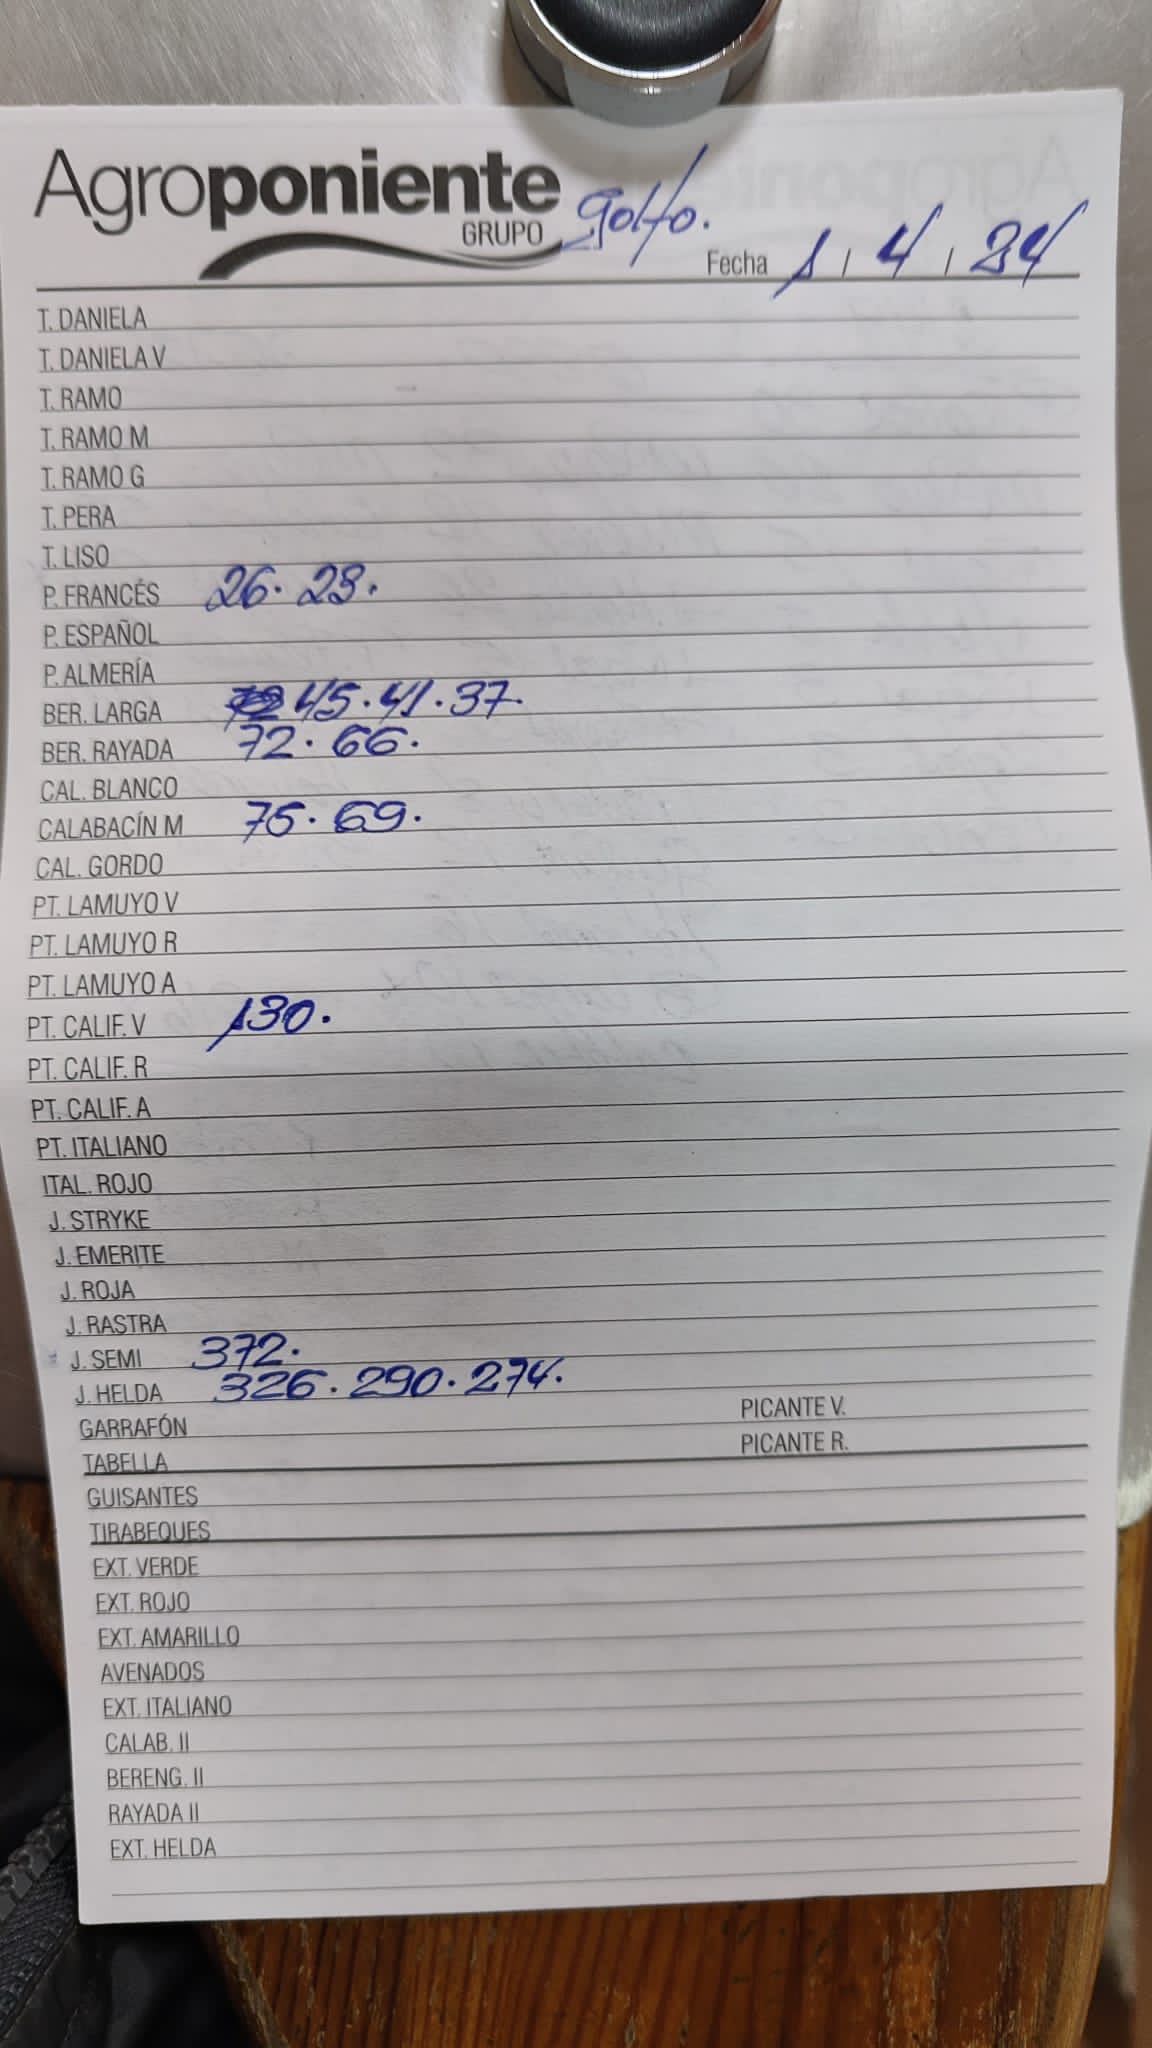 Agroponiente
GRUPO
golfo.
Fecha 1 / 4 / 24
T. DANIELA
T. DANIELA V
T. RAMO
T. RAMO M
T. RAMO G
T. PERA
T. LISO
P. FRANCÉS 26. 23.
P. ESPAÑOL
P. ALMERÍA
BER. LARGA 45. 41. 37.
BER. RAYADA 72. 66.
CAL. BLANCO
CALABACÍN M 75. 69.
CAL. GORDO
PT. LAMUYO V
PT. LAMUYO R
PT. LAMUYO A
PT. CALIF. V 130.
PT. CALIF. R
PT. CALIF. A
PT. ITALIANO
ITAL. ROJO
J. STRYKE
J. EMERITE
J. ROJA
J. RASTRA
J. SEMI 372.
J. HELDA 326. 290. 274.
GARRAFÓN PICANTE V.
TABELLA PICANTE R.
GUISANTES
TIRABEQUES
EXT. VERDE
EXT. ROJO
EXT. AMARILLO
AVENADOS
EXT. ITALIANO
CALAB. II
BERENG. II
RAYADA II
EXT. HELDA